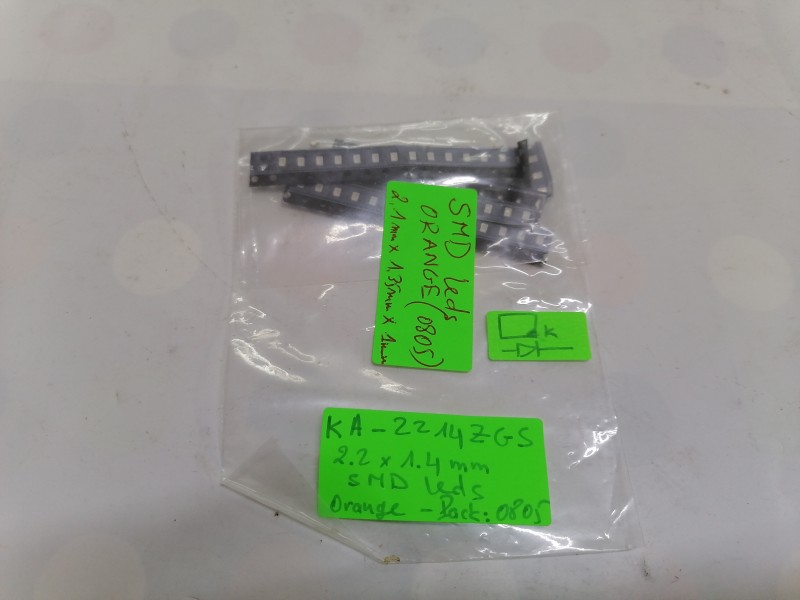 SMD Leds
ORANGE (0805)
2.1mm x 1.35mm x 1mm
K
KA-2214ZGS
2.2 x 1.4 mm
SMD Leds
Orange - Pack: 0805